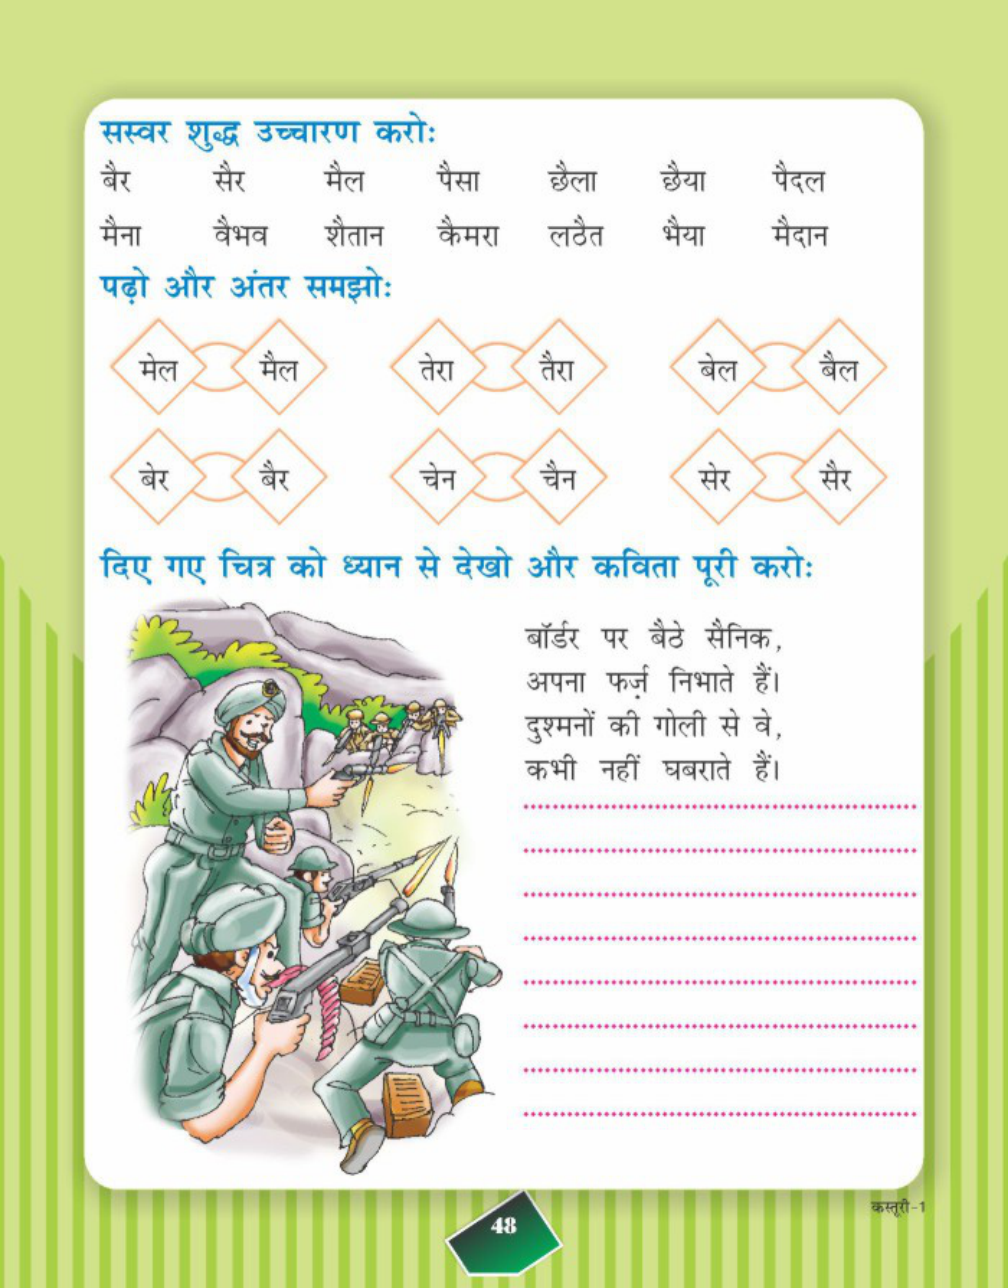 सस्वर शुद्ध उच्चारण करोः
बैर सैर मैल पैसा छैला छैया पैदल
मैना वैभव शैतान कैमरा लठैत भैया मैदान
पढ़ो और अंतर समझोः
मेल मैल तेरा तैरा बेल बैल
बेर बैर चेन चैन सेर सैर
दिए गए चित्र को ध्यान से देखो और कविता पूरी करोः
बॉर्डर पर बैठे सैनिक,
अपना फर्ज़ निभाते हैं।
दुश्मनों की गोली से वे,
कभी नहीं घबराते हैं।
कस्तूरी-1
48